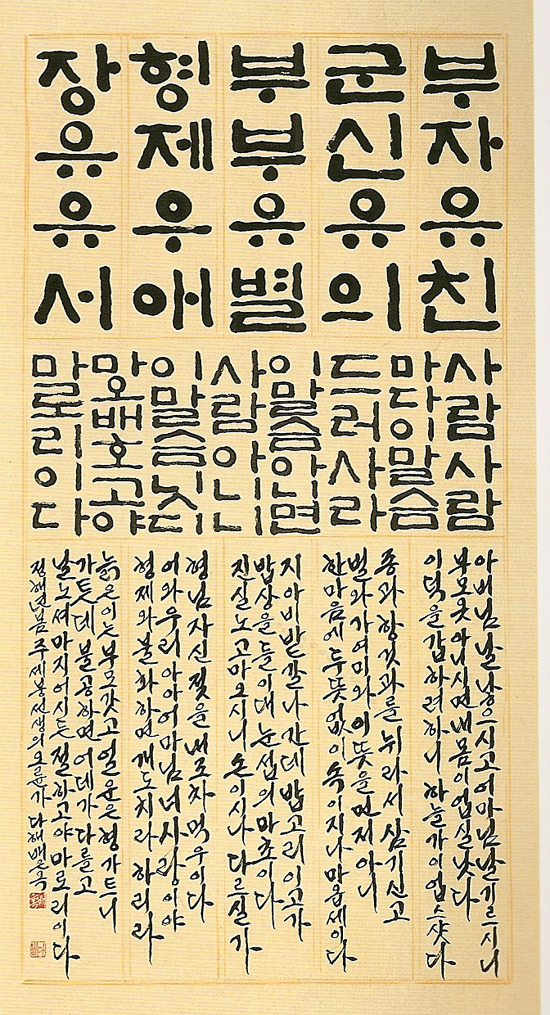 부자유친
군신유의
부부유별
형제우애
장유유서
사람사람
마다이말슴
드러사라
이말슴아니면
사람아니니
이말슴닛디
마오배호고야
말로리이다
아버님 날 낳으시고 어마님 날 기르시니
부모옷 아니시면 내 몸이 업실낫다
이 덕을 갑하려 하니 하늘가이 업스샷다
종과 항것과를 뉘라서 삼기신고
벌와 가여미와 이 뜻을 먼저 아니
한 마음에 두 뜻 없이 속이지나 마옵세이다
지아비 밭 갈나 간 데 밥고리 이고 가
밥상을 들이대 눈섭의 마초이다
진실노 고마오시니 손이시나 다르실가
형님 자신 젖을 내조차 먹우이다
어와 우리 아아 어마님 너 사랑이야
형제와 불화하면 개도치라 하리라
늙은이는 부모 갓고 얼운은 형 가트니
가튼데 불공하면 어데가 다를고
날노셔 마지어시든 절하고야 마로리이다
정해년봄 주세붕선생의 오륜가 다해